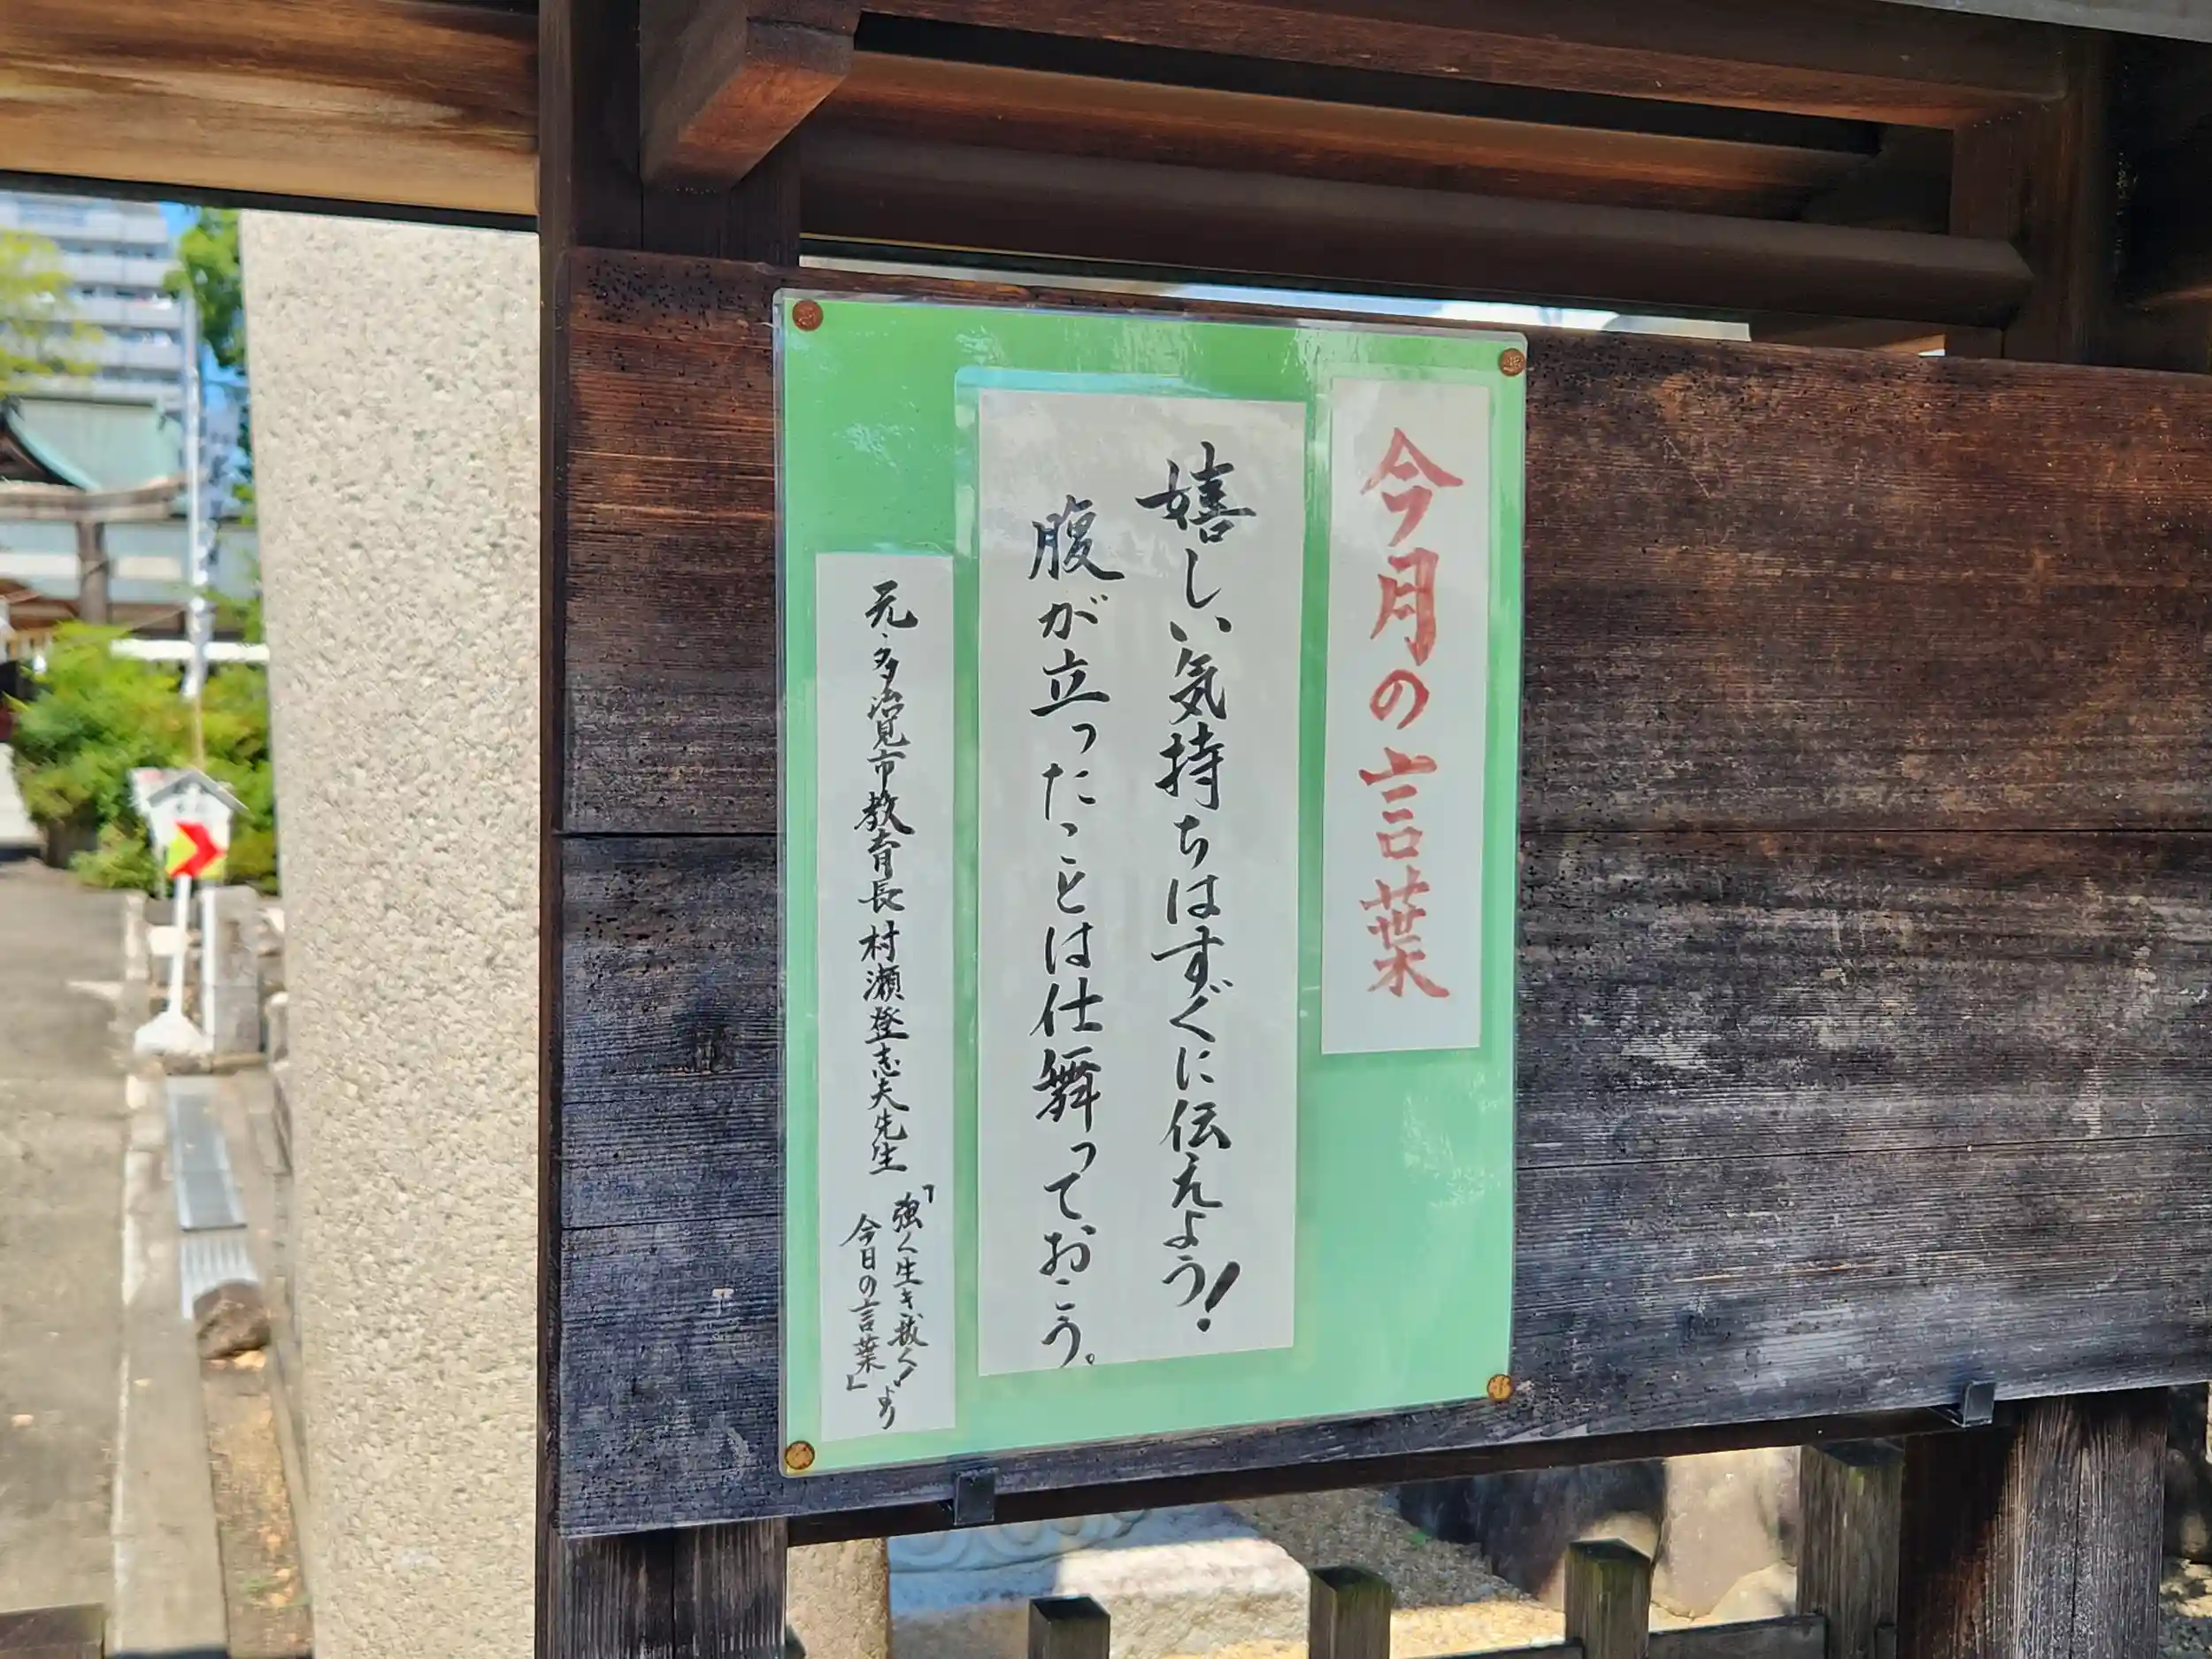 今月の言葉
嬉しい気持ちはすぐに伝えよう!
腹が立ったことは仕舞っておこう。
元・多治見市教育長 村瀬登志夫先生
「強く生き抜く!
今日の言葉」より